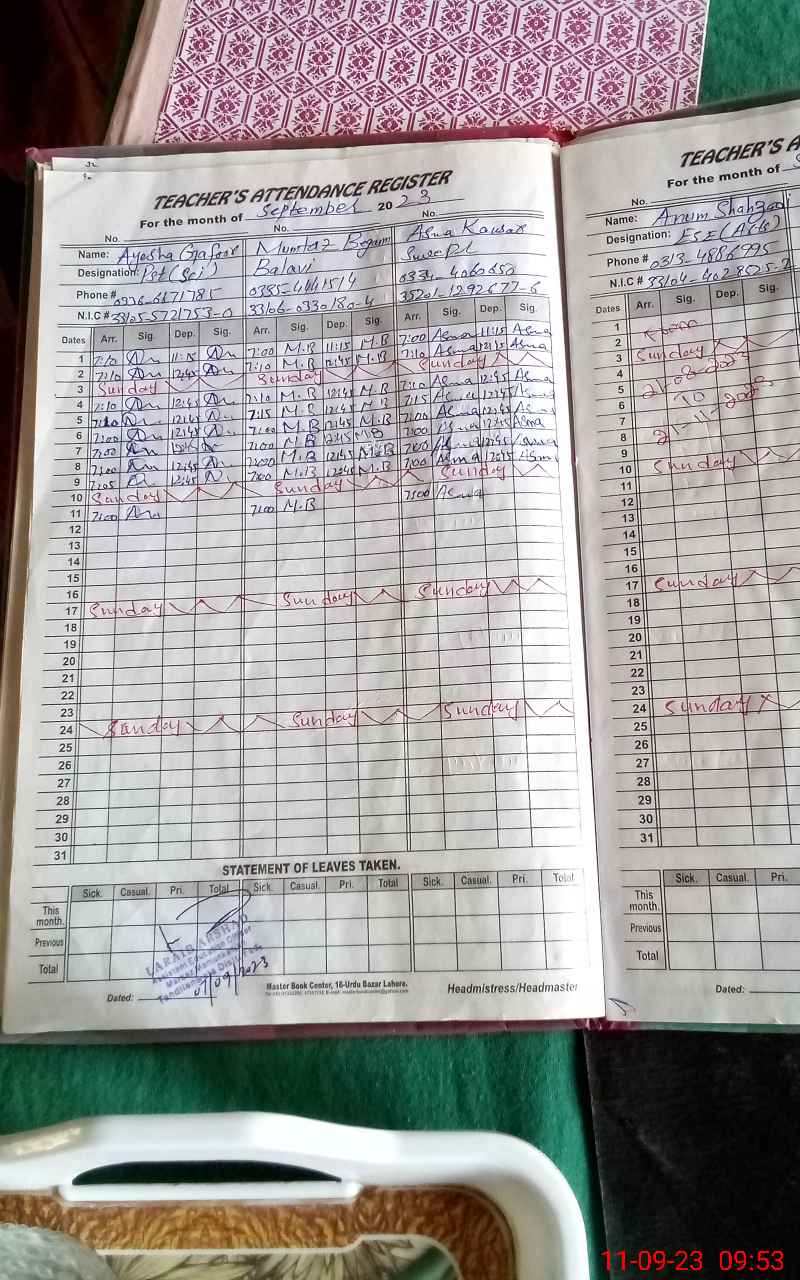 TEACHER'S ATTENDANCE REGISTER
For the month of September 2023
No. No. No.
Name: Ayesha Gafoor Mumtaz Begam Asma Kausar
Designation: Pst (Sci) Balavi
Phone #
N.I.C # 33105-5721753-0 33106-0330180-4 35201-1292677-6
Dates Arr. Sig. Dep. Sig. Arr. Sig. Dep. Sig. Arr. Sig. Dep. Sig.
1 7:10 11:15 7:00 M.B 11:15 M.B 7:00 Asma 11:15 Asma
2 7:10 12:45 7:10 M.B 12:45 M.B 7:10 Asma 12:45 Asma
3 Sunday Sunday Sunday
4 7:10 12:45 7:10 M.B 12:45 M.B 7:10 Asma 12:45 Asma
5 12:45 7:15 M.B 12:45 M.B 7:15 Asma 12:45 Asma
6 7:00 12:45 7:00 M.B 12:45 M.B 7:00 Asma 12:45 Asma
7 7:00 7:00 M.B M.B 7:00 Asma 12:45 Asma
8 7:00 12:45 7:00 M.B 12:45 M.B 7:00 Asma 12:45 Asma
9 7:05 12:45 7:00 M.B 12:45 M.B 7:00 Asma Asma
10 Sunday Sunday Sunday
11 7:00 7:00 M.B 7:00 Asma
12
13
14
15
16
17 Sunday Sunday Sunday
18
19
20
21
22
23
24 Sunday Sunday Sunday
25
26
27
28
29
30
31
STATEMENT OF LEAVES TAKEN.
Sick. Casual. Pri. Total Sick. Casual. Pri. Total Sick. Casual. Pri. Total
This month.
Previous
Total
LARAIB ARSHAD
Assistant Education Officer
07/09/2023
Dated:
Master Book Center, 16-Urdu Bazar Lahore.
Headmistress/Headmaster
TEACHER'S A
For the month of S
No.
Name: Anum Shahzadi
Designation: ESE (Arts)
Phone # 0313-4886995
N.I.C # 33104-402805-2
Dates Arr. Sig. Dep. Sig.
1
2
3 Sunday
4
5 21-08-2023
6 to
7
8 21-11-2023
9
10 Sunday
11
12
13
14
15
16
17 Sunday
18
19
20
21
22
23
24 Sunday
25
26
27
28
29
30
31
Sick. Casual. Pri.
This month.
Previous
Total
Dated:
11-09-23 09:53